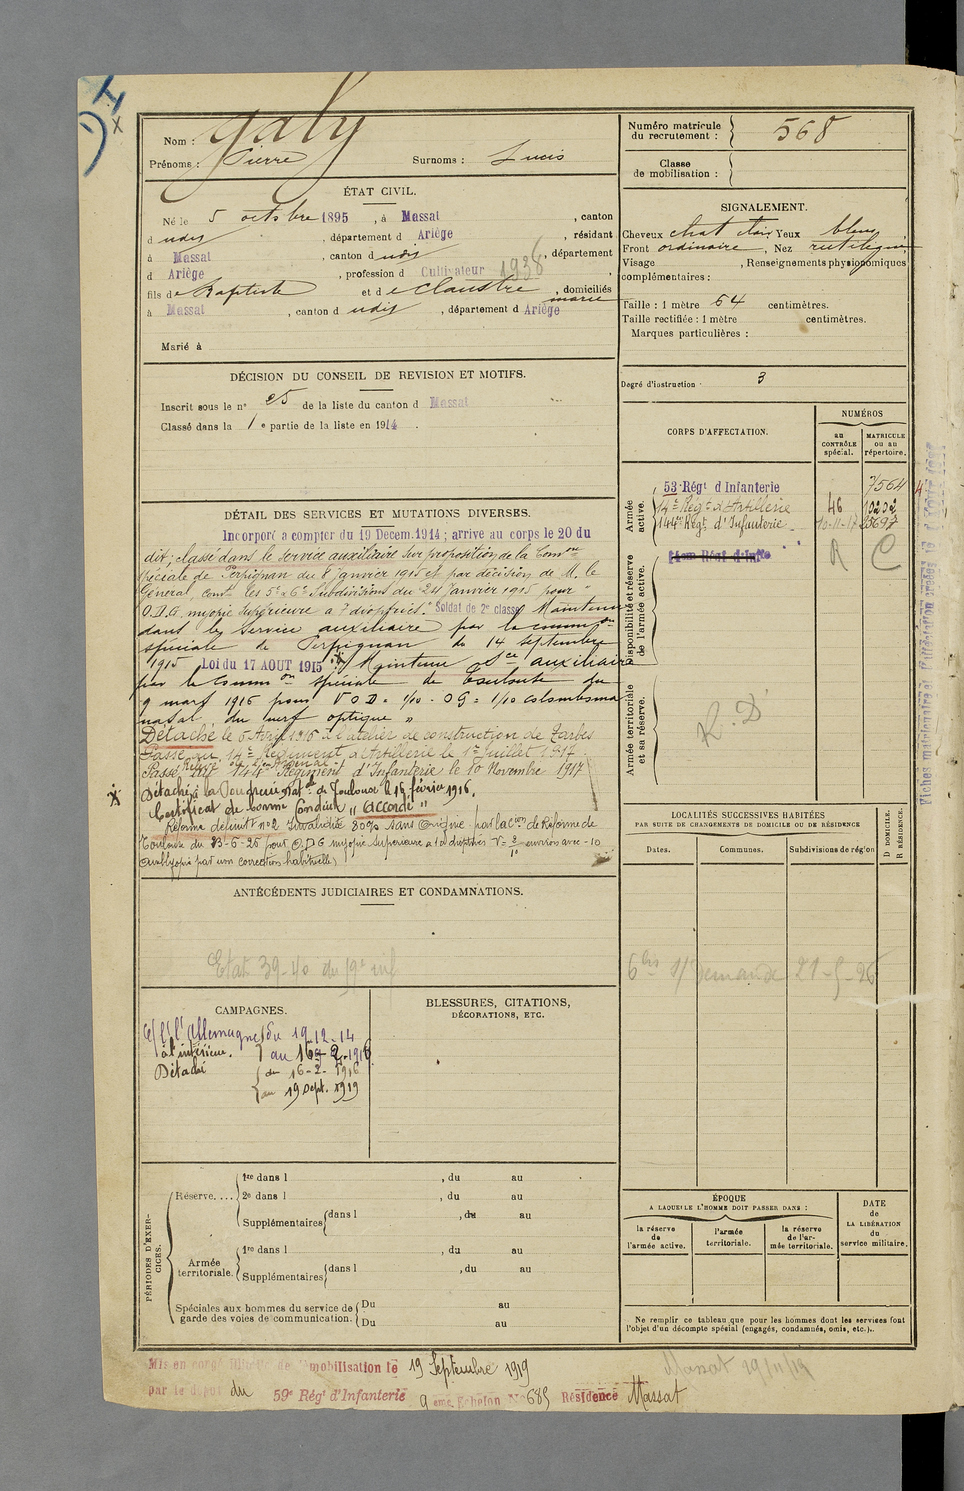 Nom : Galy
Prénoms : Pierre Surnoms :
ÉTAT CIVIL.
Né le 5 octobre 1895, à Massat, canton
d udis, département d Ariège, résidant
à Massat, canton d udis, département
d Ariège, profession d Cultivateur 1936
fils de Baptiste et de Claustre marie, domiciliés
à Massat, canton d udis, département d Ariège
Marié à
DÉCISION DU CONSEIL DE REVISION ET MOTIFS.
Inscrit sous le n° 25 de la liste du canton d Massat
Classé dans la 1e partie de la liste en 1914.
DÉTAIL DES SERVICES ET MUTATIONS DIVERSES.
Incorporé a compter du 19 Decem. 1914 ; arrive au corps le 20 du
dit ; classé dans le service auxiliaire sur proposition de la Comon
spéciale de Perpignan du 8 Janvier 1915 et par décision de M. le
Général Comt les 5e & 6e Subdivisions du 24 Janvier 1915 pour
O.D.G. myopie supérieure a 7 dioptries. Soldat de 2e classe Maintenu
dans le service auxiliaire par la common
spéciale de Perpignan du 14 septembre
1915 Loi du 17 AOUT 1915 Maintenu Sce auxiliaire
par la Common spéciale de Toulouse du
9 mars 1916 pour V O D = 1/10 - O G = 1/10
nasal du nerf optique "
Détaché le 6 Avril 1916 à l'atelier de construction de Tarbes
Passé au 14e Régiment d'Artillerie le 1er Juillet 1917
Passé au 144e Régiment d'Infanterie le 10 Novembre 1917
Détaché à la Poudrerie Natle de Toulouse le 16 février 1916.
Certificat de bonne Conduite " Accordé "
Réforme définit. n° 2 Invalidité 80% sans Origine par la Cion de Réforme de
Toulouse du 23-6-25 pour O.D.G myopie supérieure a 10 dioptries V = 2/10 environ avec - 10
Amblyopie par non correction habituelle)
ANTÉCÉDENTS JUDICIAIRES ET CONDAMNATIONS.
Etat 39-40 du 19e inf
CAMPAGNES.
C/ l'Allemagne du 19-12-14
à l'intérieur. au 15-2-1916
Détaché du 16-2-1916
au 19 Sept. 1919
BLESSURES, CITATIONS,
DÉCORATIONS, ETC.
PÉRIODES D'EXERCICES.
Réserve....
1re dans l , du au
2e dans l , du au
Supplémentaires dans l , du au
Armée
territoriale.
1re dans l , du au
Supplémentaires dans l , du au
Spéciales aux hommes du service de
garde des voies de communication.
Du au
Du au
Mis en congé illimité de démobilisation le 19 Septembre 1919
par le dépôt du 59e Régt d'Infanterie 9 eme Echelon No 685 Résidence Massat
Massat 29/11/19
Numéro matricule
du recrutement : 568
Classe
de mobilisation :
SIGNALEMENT.
Cheveux chat clair Yeux bleus
Front ordinaire, Nez rectiligne
Visage , Renseignements physionomiques
complémentaires :
Taille : 1 mètre 64 centimètres.
Taille rectifiée : 1 mètre centimètres.
Marques particulières :
Degré d'instruction : 3
CORPS D'AFFECTATION.
NUMÉROS
au
CONTRÔLE
spécial.
MATRICULE
ou au
répertoire.
Armée
active.
53 Régt d Infanterie 7564
14e Régt d'Artillerie 46 10202
144e Régt d'Infanterie 10-11-17
Disponibilité et réserve
de l'armée active.
R C
Armée territoriale
et sa réserve.
R.D
LOCALITÉS SUCCESSIVES HABITÉES
PAR SUITE DE CHANGEMENTS DE DOMICILE OU DE RÉSIDENCE
Dates.
Communes.
Subdivisions de région
D DOMICILE.
R RÉSIDENCE.
6 bis s/ demande 21-5-26
ÉPOQUE
A LAQUELLE L'HOMME DOIT PASSER DANS :
la réserve
de
l'armée active.
l'armée
territoriale.
la réserve
de l'ar-
mée territoriale.
DATE
de
LA LIBÉRATION
du
service militaire.
Ne remplir ce tableau que pour les hommes dont les services font
l'objet d'un décompte spécial (engagés, condamnés, omis, etc.).